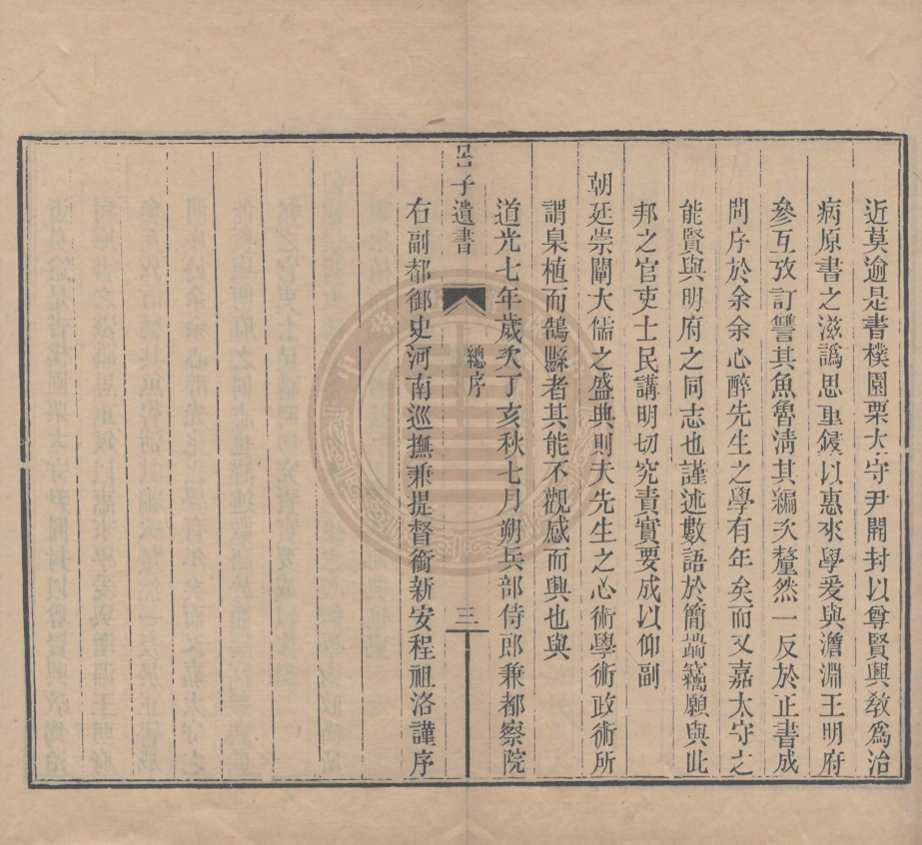 近莫逾是書樸園栗太守尹開封以尊賢興敎爲治
病原書之滋譌思重鋟以惠來學爰與澹淵王明府
參互攷訂讐其魚魯淸其編次釐然一反於正書成
問序於余余心醉先生之學有年矣而又嘉太守之
能賢與明府之同志也謹述數語於簡端竊願與此
邦之官吏士民講明切究責實要成以仰副
朝廷崇闡大儒之盛典則夫先生之心術學術政術所
謂臬植而鵠縣者其能不觀感而興也與
道光七年歲次丁亥秋七月朔兵部侍郎兼都察院
呂子遺書
總序
三
右副都御史河南巡撫兼提督銜新安程祖洛謹序